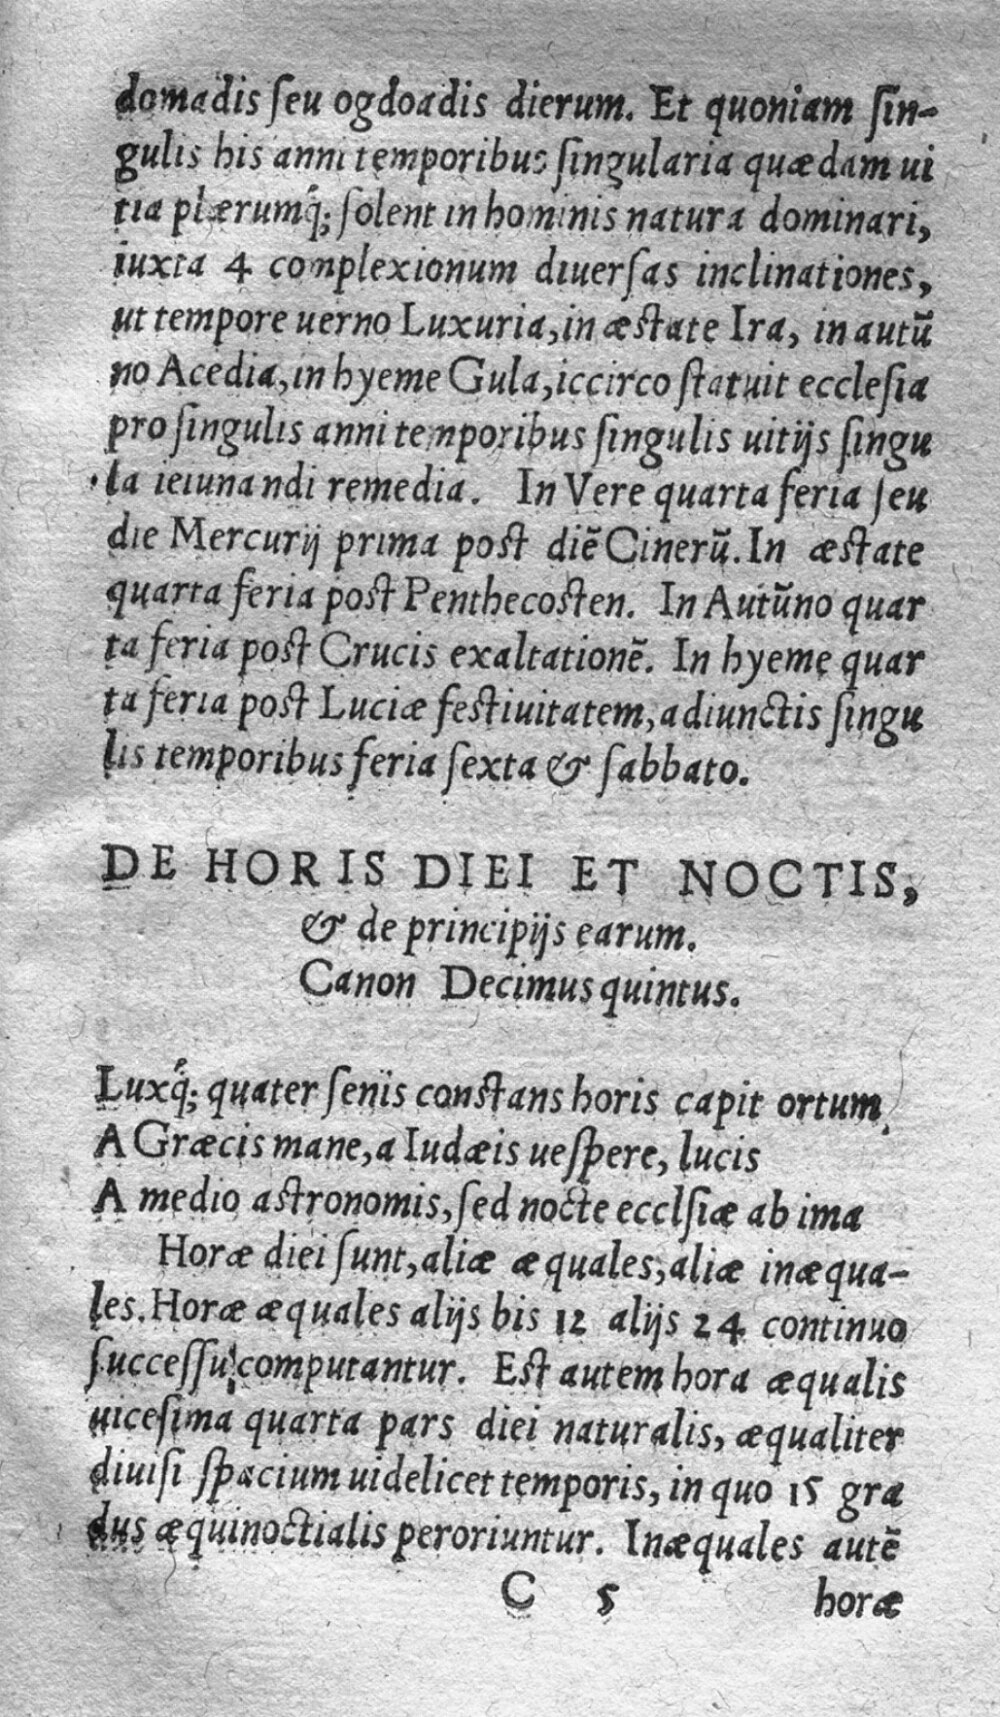 domadis ſeu ogdoadis dierum. Et quoniam ſin-
gulis his anni temporibus ſingularia quædam ui
tia plærumq́; ſolent in hominis natura dominari,
iuxta 4 complexionum diuerſas inclinationes,
ut tempore uerno Luxuria, in æſtate Ira, in autũ
no Acedia, in hyeme Gula, iccirco ſtatuit eccleſia
pro ſingulis anni temporibus ſingulis uitijs ſingu
la ieiunandi remedia. In Vere quarta feria ſeu
die Mercurij prima post diẽ Cinerũ. In æſtate
quarta feria poſt Penthecoſten. In Autũno quar
ta feria poſt Crucis exaltationẽ. In hyeme quar
ta feria poſt Luciæ feſtiuitatem, adiunctis ſingu
lis temporibus feria ſexta & ſabbato.
DE HORIS DIEI ET NOCTIS,
& de principijs earum.
Canon Decimus quintus.
Luxq́; quater ſenis conſtans horis capit ortum,
A Græcis mane, a Iudæis ueſpere, lucis
A medio aſtronomis, ſed nocte ecclſiæ ab ima
Horæ diei ſunt, aliæ æquales, aliæ inæqua-
les. Horæ æquales alijs bis 12 alijs 24 continuo
ſucceſſu computantur. Eſt autem hora æqualis
uiceſima quarta pars diei naturalis, æqualiter
diuiſi ſpacium uidelicet temporis, in quo 15 gra
dus æquinoctialis peroriuntur. Inæquales autẽ
C 5 horæ